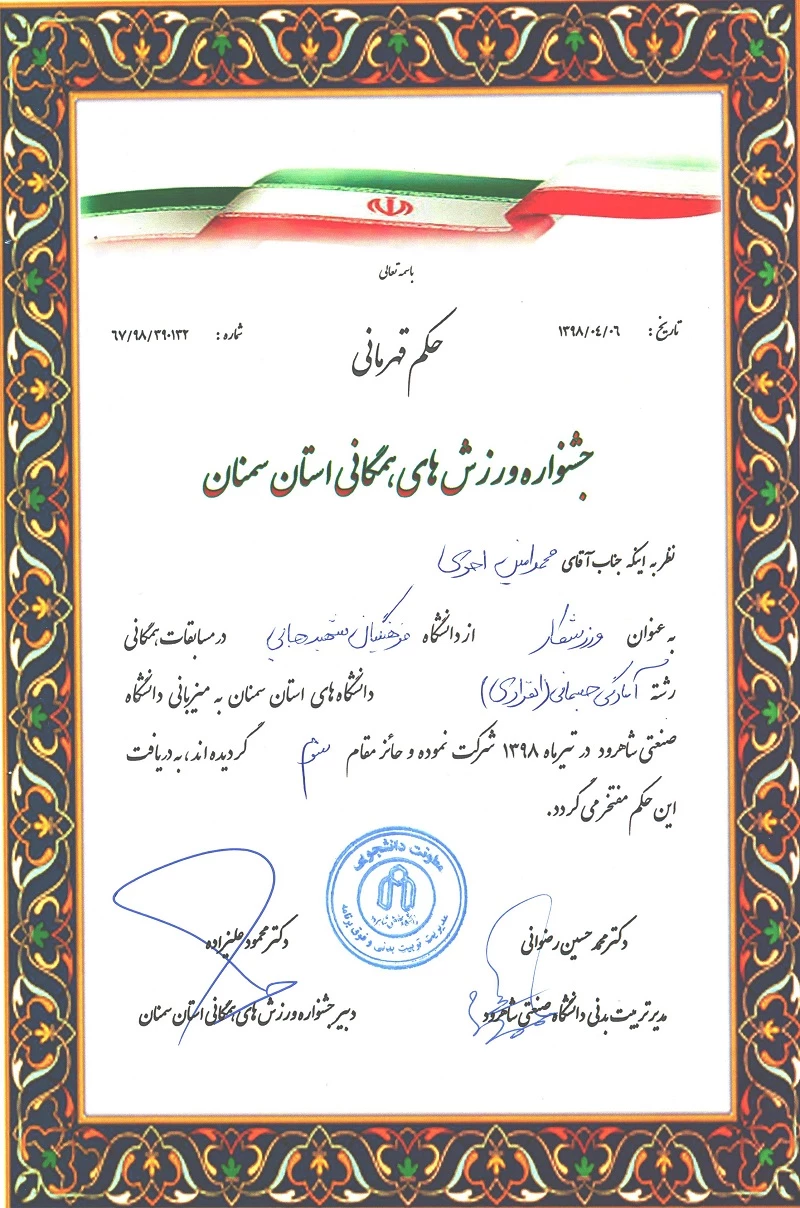 باسمه تعالی
تاریخ: ۱۳۹۸/۰۴/۰۶
شماره: ۶۷/۹۸/۳۹۰۱۳۲
حکم قهرمانی
جشنواره ورزش های همگانی استان سمنان
نظر به اینکه جناب آقای محمدامین احمدی
به عنوان ورزشکار از دانشگاه فرهنگیان شهید رجایی در مسابقات همگانی
رشته آمادگی جسمانی (انفرادی) دانشگاه های استان سمنان به میزبانی دانشگاه
صنعتی شاهرود در تیرماه ۱۳۹۸ شرکت نموده و حائز مقام سوم گردیده اند، به دریافت
این حکم مفتخر می گردد.
معاونت دانشجوئی
دانشگاه صنعتی شاهرود
مدیریت تربیت بدنی و فوق برنامه
دکتر محمد حسین رضوانی
مدیر تربیت بدنی دانشگاه صنعتی شاهرود
دکتر محمود علیزاده
دبیر جشنواره ورزش های همگانی استان سمنان